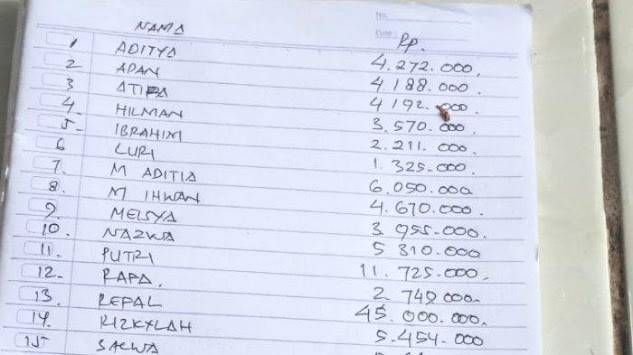 No.
Date
NAMA Rp.
1 ADITYA 4.272.000.
2 APAN 4.188.000.
3 ATIPA 4.192.000.
4. HILMAN 3.570.000.
5. IBRAHIM 2.211.000.
6 LURI 1.325.000.
7. M ADITIA 6.050.000
8. M IHWAN 4.670.000.
9. MELSYA 3.955.000.
10. NAZWA 5 310.000
11. PUTRI 11.725.000.
12. RAPA. 2 749.000
13. REPAL 45.000.000.
14. RIZKYLAH 5.454.000
15 SALWA